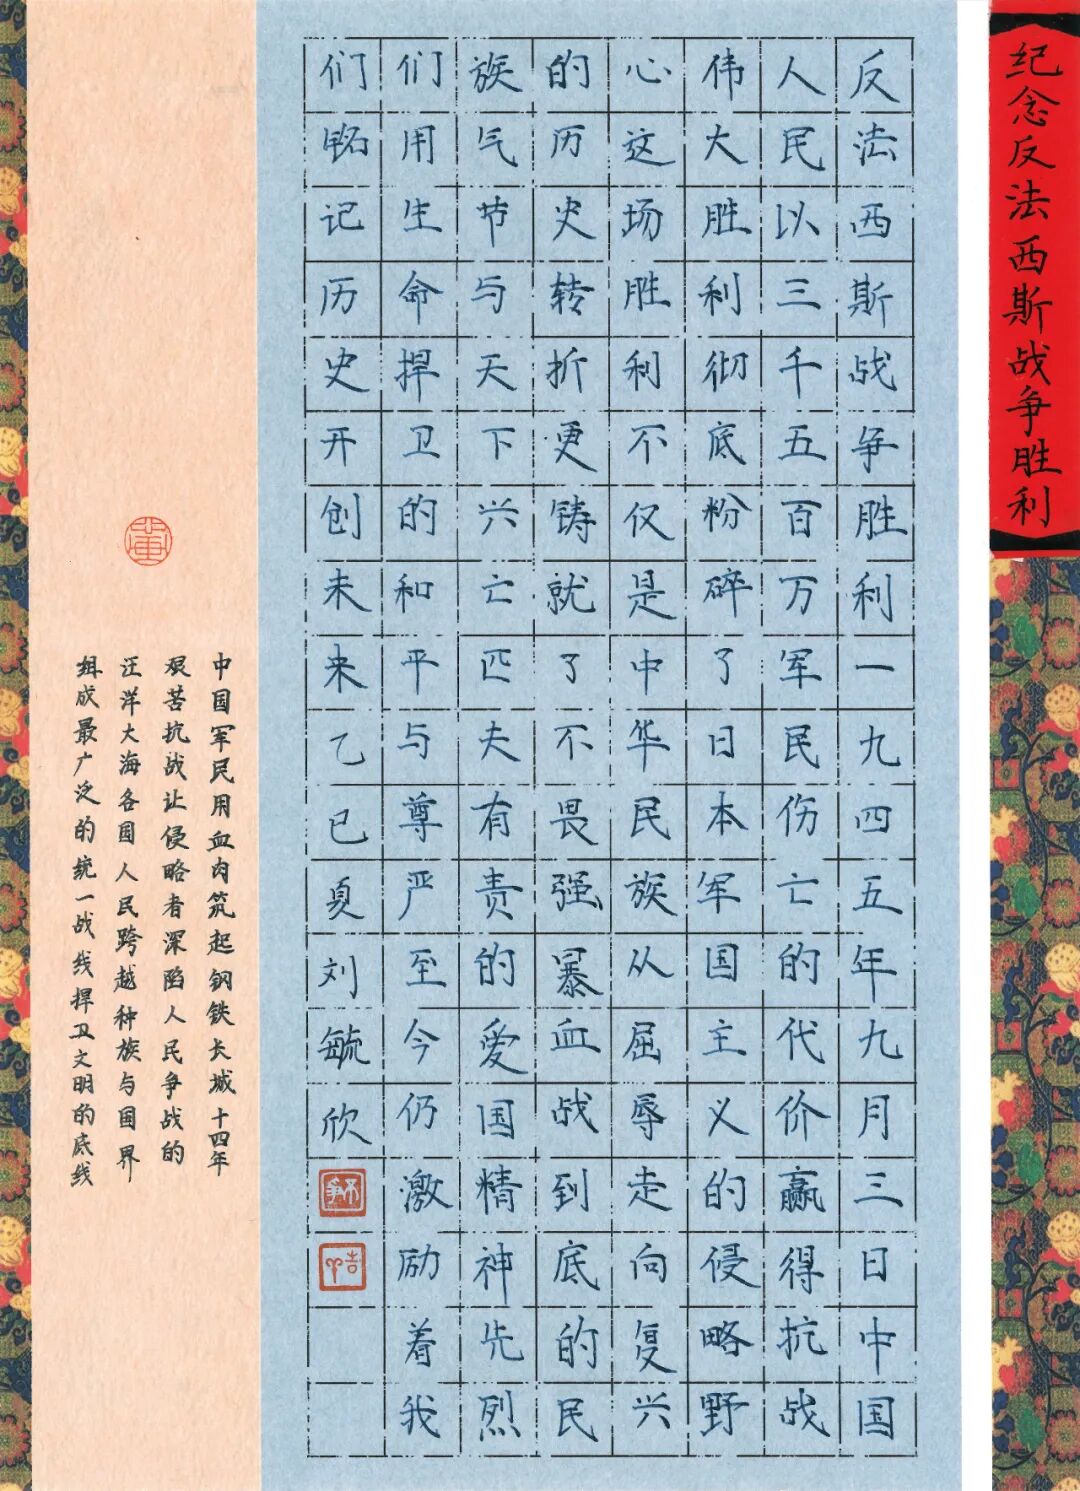 纪念反法西斯战争胜利
反法西斯战争胜利一九四五年九月三日中国
人民以三千五百万军民伤亡的代价赢得抗战
伟大胜利彻底粉碎了日本军国主义的侵略野
心这场胜利不仅是中华民族从屈辱走向复兴
的历史转折更铸就了不畏强暴血战到底的民
族气节与天下兴亡匹夫有责的爱国精神先烈
们用生命捍卫的和平与尊严至今仍激励着我
们铭记历史开创未来乙巳夏刘毓欣
中国军民用血肉筑起钢铁长城十四年
艰苦抗战让侵略者深陷人民争战的
汪洋大海各国人民跨越种族与国界
组成最广泛的统一战线捍卫文明的底线